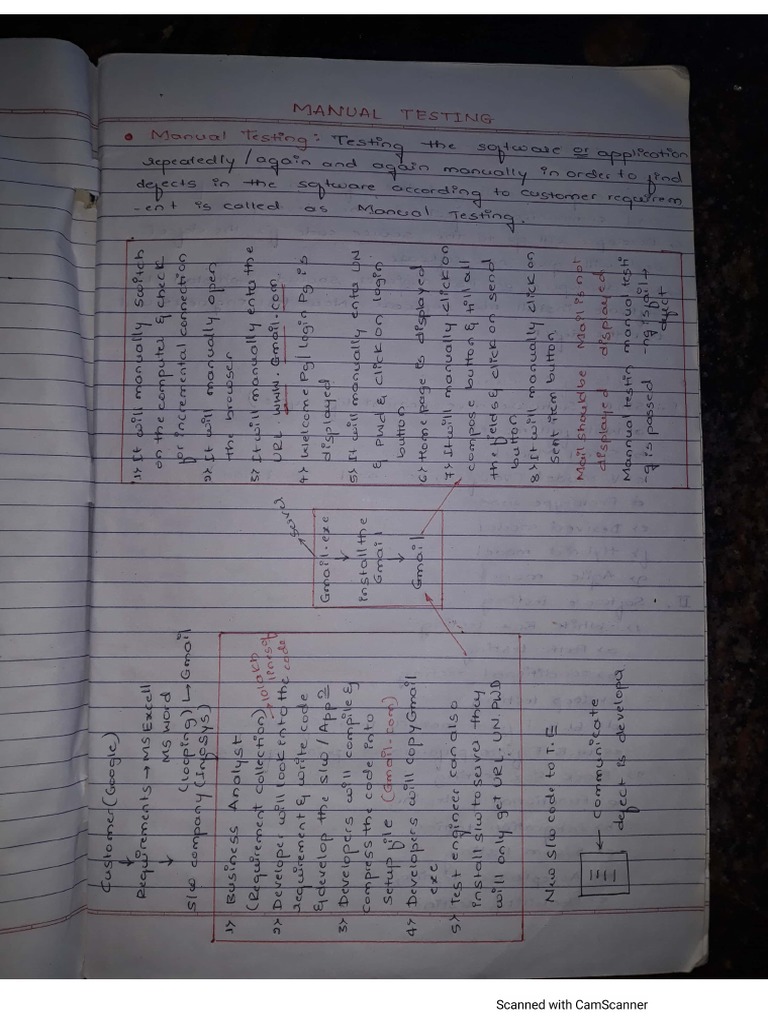 MANUAL TESTING
• Manual Testing: Testing the software or application
repeatedly / again and again manually in order to find
defects in the software according to customer requirem
-ent is called as Manual Testing.
Customer (Google)
↓
Requirements → MS Excell
MS Word
↓ (looping) ↳ Gmail
S/w company (Infosys)
1> Business Analyst
(Requirement collection) → 10 lakh
2> Developer will look into the lines of
requirement & write code code
& develop the s/w / App=
3> Developers will compile &
compress the code into
Setup file (Gmail.com)
4> Developers will copy Gmail
exe
5> Test engineer can also
install s/w to server they
will only get URL. UN. PWD
New s/w code to T.E
← communicate
defect is develope
server
Gmail.exe
↓
install the
Gmail
↓
Gmail
1> It will manually switch
on the computer & check
for incremental connection
2> It will manually open
the browser
3> It will manually enter the
URL. www.Gmail.com
4> Welcome Pg / Login Pg is
displayed
5> It will manually enter UN
& PWd & click on login
button
6> Home page is displayed
7> It will manually click on
compose button & fill all
the fields & click on send
button
8> It will manually click on
sent item button.
Mail should be Mail is not
displayed displayed
Mannual testin manual testi
-g is passed -ng is fail →
defect
Scanned with CamScanner